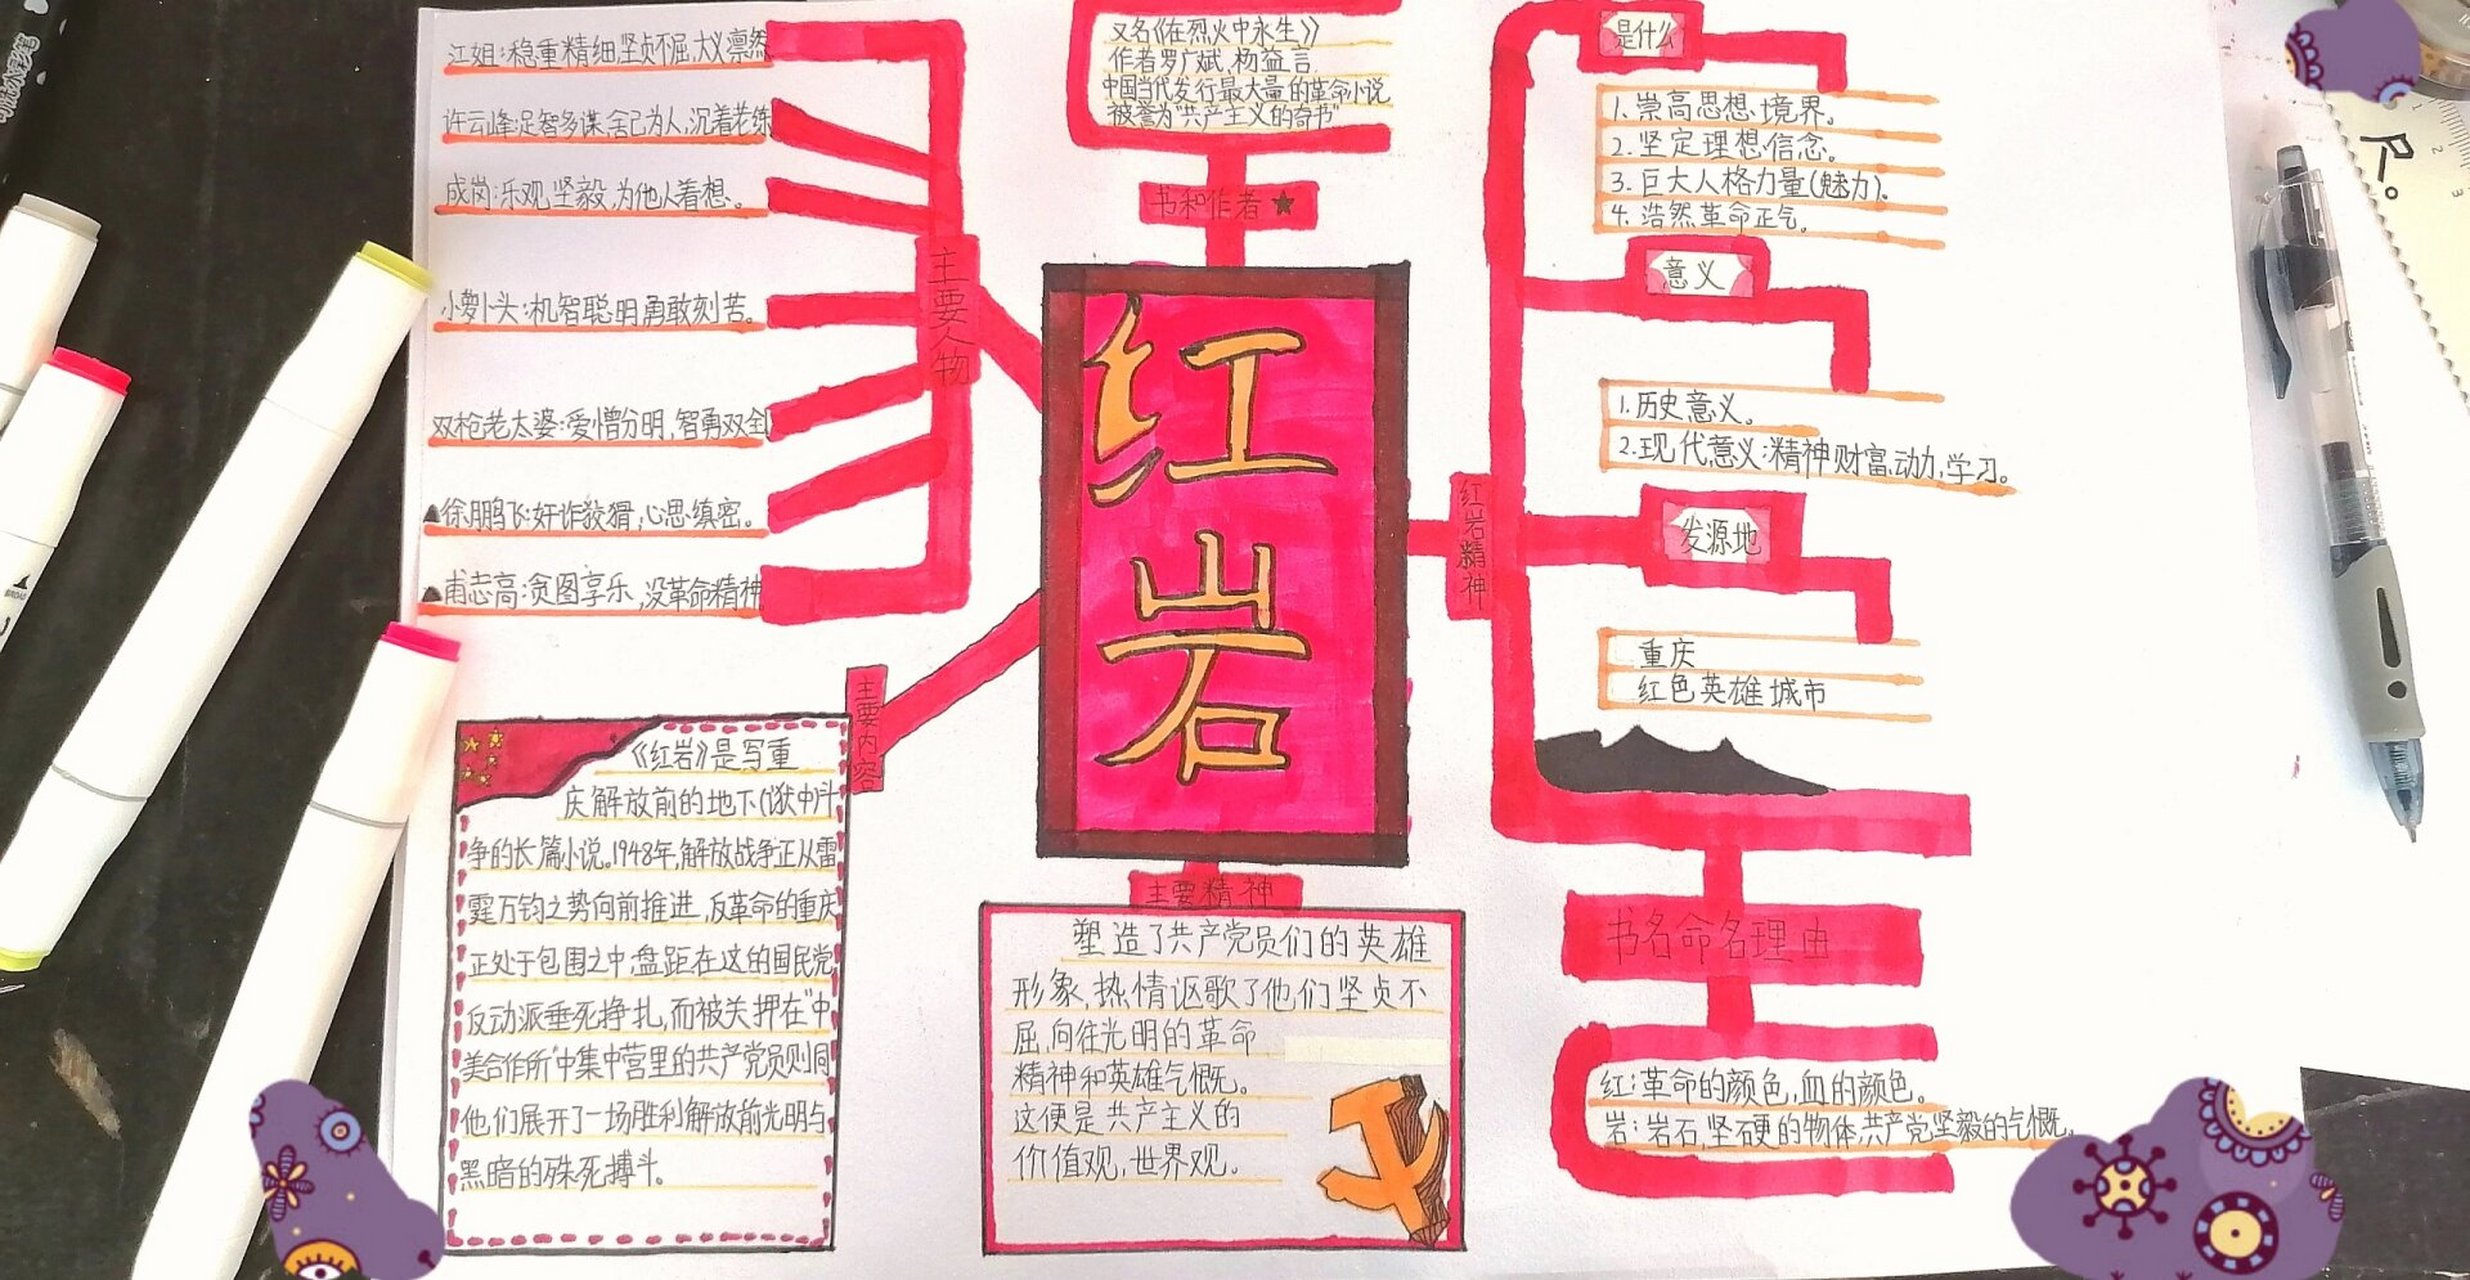 江姐:稳重精细,坚贞不屈,大义凛然
许云峰:足智多谋,舍己为人,沉着老练
成岗:乐观,坚毅,为他人着想。
小萝卜头:机智聪明勇敢刻苦。
双枪老太婆:爱憎分明,智勇双全
徐鹏飞:奸诈狡猾,心思缜密。
甫志高:贪图享乐,没革命精神
主要人物
又名《在烈火中永生》
作者罗广斌,杨益言
中国当代发行最大量的革命小说
被誉为"共产主义的奇书"
书和作者★
红岩
主要内容
《红岩》是写重
庆解放前的地下(狱中)斗
争的长篇小说。1948年,解放战争正从雷
霆万钧之势向前推进,反革命的重庆
正处于包围之中,盘距在这的国民党
反动派垂死挣扎,而被关押在"中
美合作所"中集中营里的共产党员则同
他们展开了一场胜利解放前光明与
黑暗的殊死搏斗。
主要精神
塑造了共产党员们的英雄
形象,热情讴歌了他们坚贞不
屈,向往光明的革命
精神和英雄气慨。
这便是共产主义的
价值观,世界观。
红岩精神
是什么
1.崇高思想境界。
2.坚定理想信念。
3.巨大人格力量(魅力)。
4.浩然革命正气。
意义
1.历史意义。
2.现代意义:精神财富,动力,学习。
发源地
重庆
红色英雄城市
书名命名理由
红:革命的颜色,血的颜色。
岩:岩石,坚硬的物体,共产党坚毅的气慨。